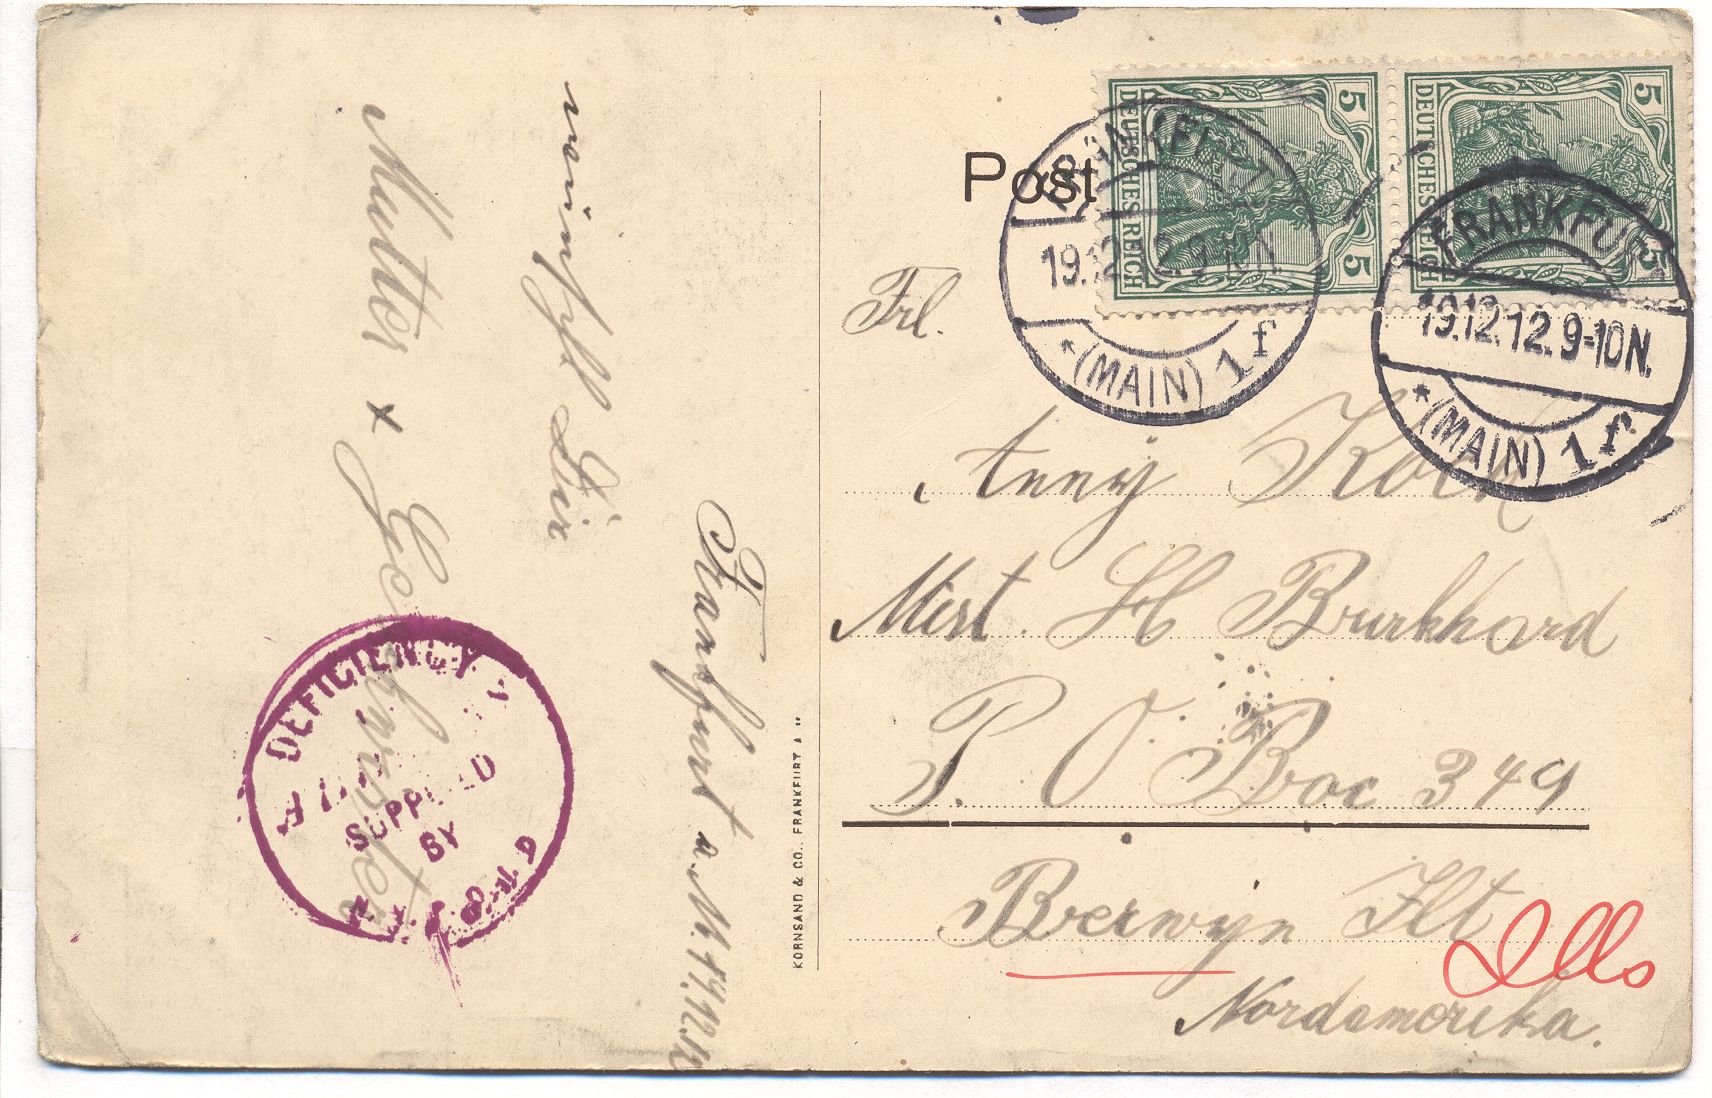 Post
DEUTSCHES REICH
5
5
DEUTSCHES REICH
5
5
FRANKFURT
19.12.12.9-10N.
*(MAIN) 1f
FRANKFURT
19.12.12.9-10N.
*(MAIN) 1f
Frl.
Anny Koch
Mist. H Burkhard
P. O. Box 349
Berwyn Ilt
Ills
Nordamerika.
KORNSAND & CO., FRANKFURT A
Frankfurt a. M. 19.12.12
wünscht Dir
Mutter + Geschwister
DEFICIENCY
SUPPLIED
BY